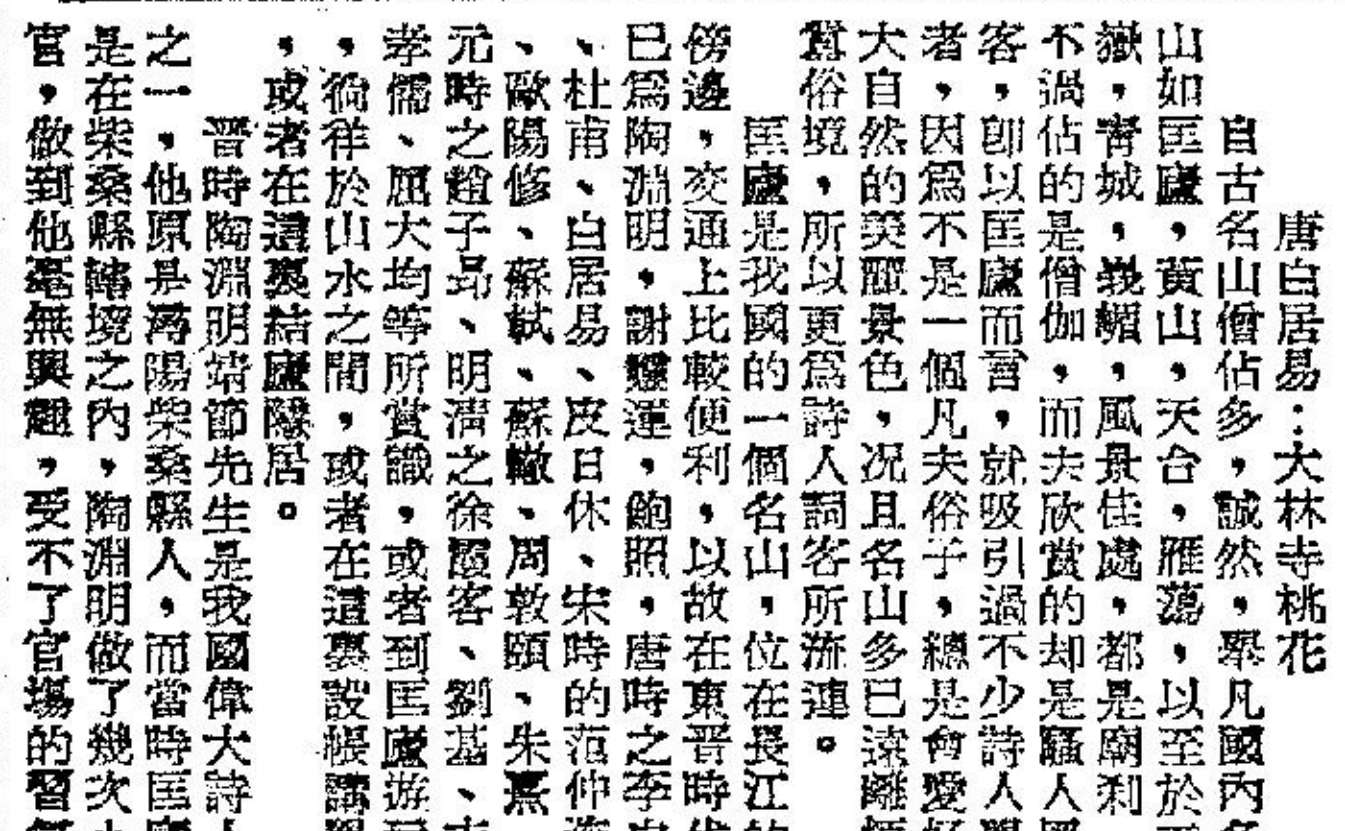 唐白居易：大林寺桃花
自古名山僧佔多，誠然，舉凡國內
山如匡廬，黃山，天台，雁蕩，以至於
嶽，青城，峨嵋，風景佳處，都是廟刹
不過佔的是僧伽，而夫欣賞的却是騷人
客，卽以匡廬而言，就吸引過不少詩人
者，因爲不是一個凡夫俗子，總是會愛
大自然的美麗景色，况且名山多已遠離
俗境，所以更爲詩人詞客所流連。
匡廬是我國的一個名山，位在長江
傍邊，交通上比較便利，以故在東晉時
已爲陶淵明，謝靈運，鮑照，唐時之李
、杜甫、白居易、皮日休、宋時的范仲
、歐陽修、蘇軾、蘇轍、周敦頤、朱熹
元時之趙子昂、明清之徐霞客、劉基、
孝儒、屈大均等所賞識，或者到匡廬游
，徜徉於山水之間，或者在這裏設帳講
，或者在這裏結廬隱居。
晋時陶淵明靖節先生是我國偉大詩
之一，他原是潯陽柴桑縣人，而當時匡
是在柴桑縣轄境之內，陶淵明做了幾次
官，做到他毫無興趣，受不了官場的習